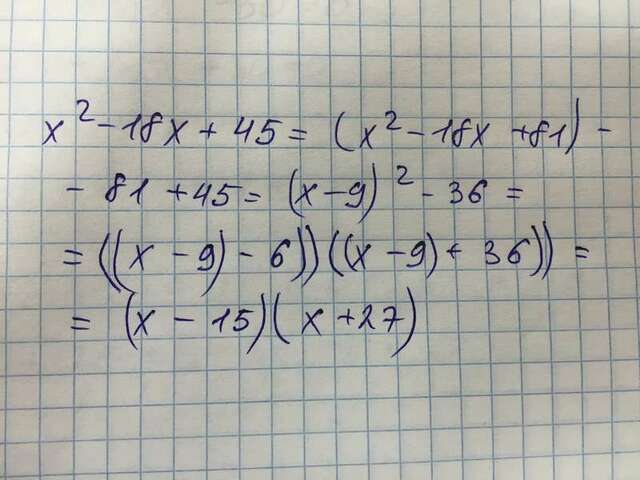 x² - 18x + 45 = (x² - 18x + 81) -
- 81 + 45 = (x - 9)² - 36 =
= ((x - 9) - 6))((x - 9) + 36)) =
= (x - 15)(x + 27)